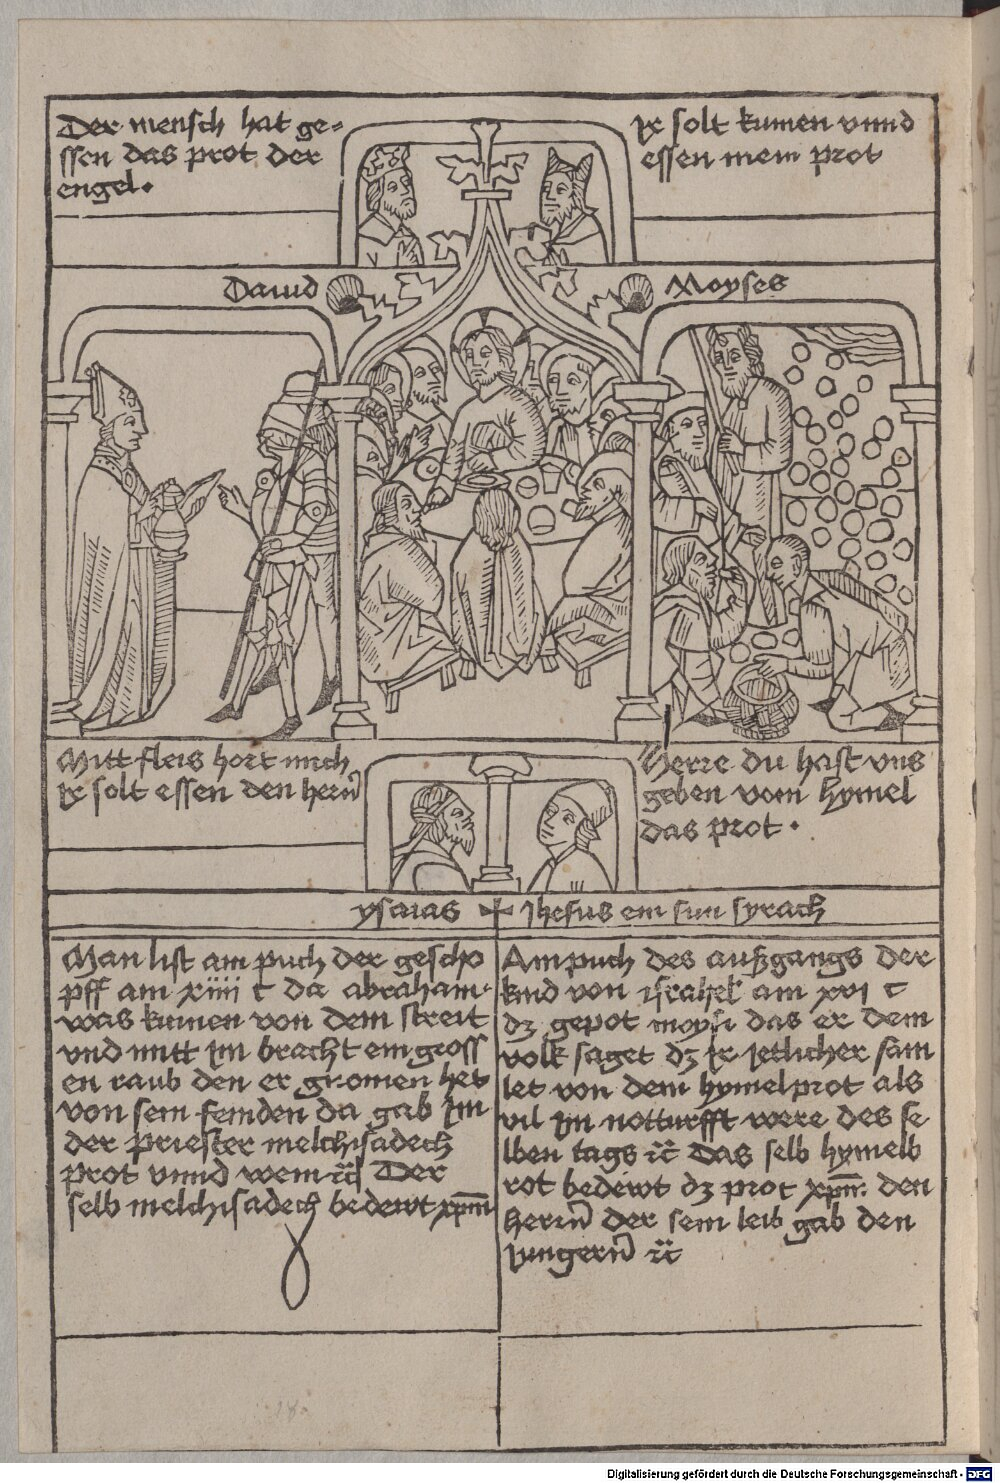 Der mensch hat ge-
ssen das prot der
engel.
Ir solt kumen vnnd
essen mein prot
Dauid
Moyses
Mitt fleis hort mich
Ir solt essen den hern̄
Herre du hast vns
geben vom hymel
das prot.
ysaias + Jhesus ein sun syrach
Man list am puch der gescho
pff am xiiii c da abraham
was kumen von dem streit
vnd mitt Im bracht ein gross
en raub den er gnomen het
von sein feinden da gab Im
der priester melchisadech
prot vnnd wein ꝛc̈ Der
selb melchisadech bedewt xp̄m
Am puch des außgangs der
kind von israhel am xvi c
dz gepot moysi das er dem
volk saget dz Ir Jetlicher sam
let von dem hymelprot als
vil Im notturfft were des se
lben tags ꝛc̈ Das selb hymelb
rot bedewt dz prot xp̄m. den
herrn̄ der sein leib gab den
Jungern̄ ꝛc̈
Digitalisierung gefördert durch die Deutsche Forschungsgemeinschaft - DFG